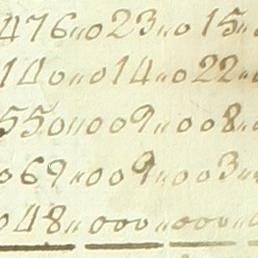 476„023„015„
140„014„022„
550„009„008„
069„009„003„
048„000„000„